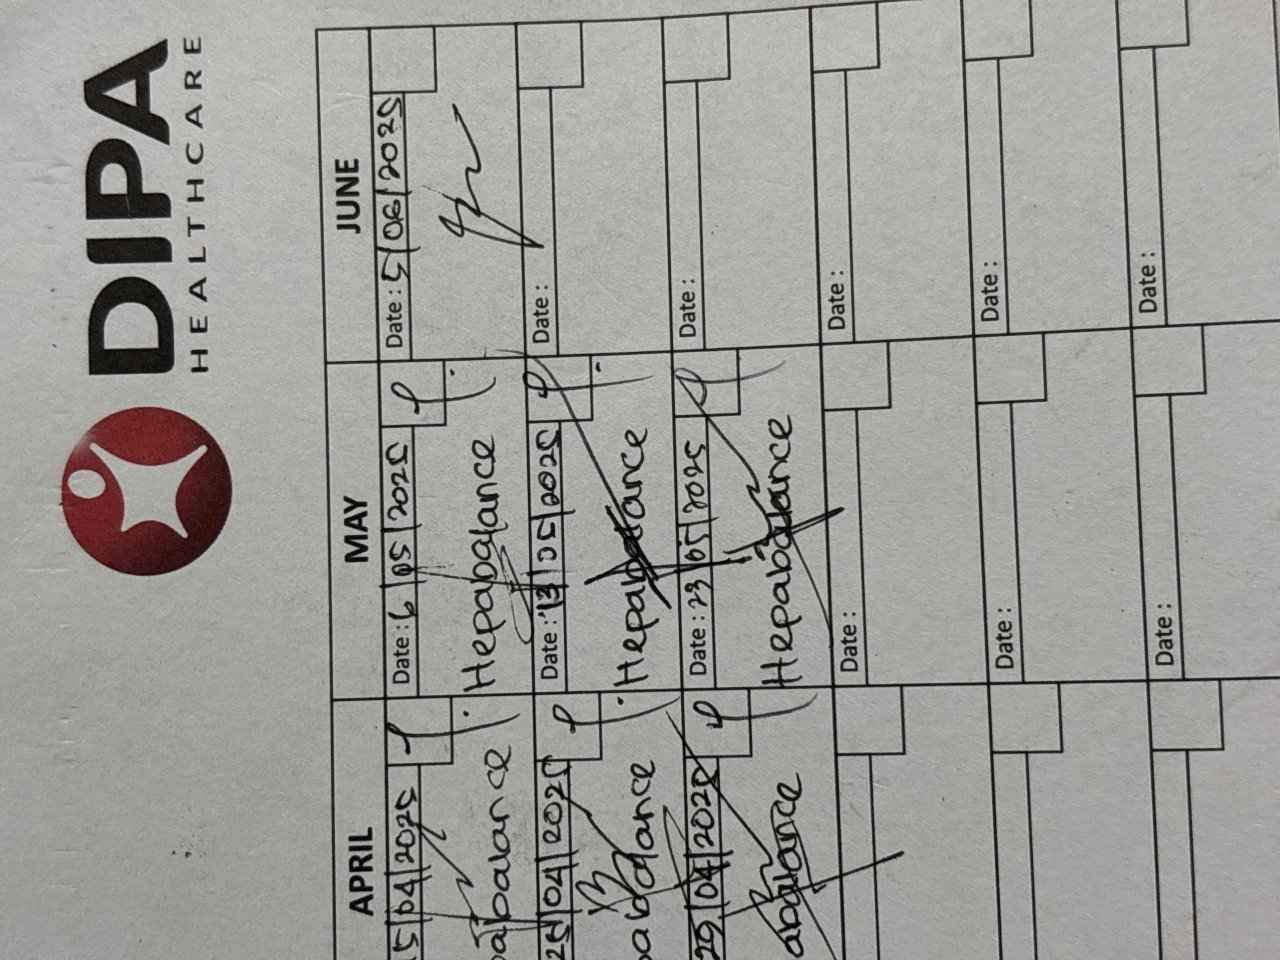 DIPA
HEALTHCARE
APRIL MAY JUNE
5/04/2025 Date : 6/05/2025 Date : 5/06/2025
abalance Hepabalance
04/2025 Date : 13/05/2025 Date :
abalance Hepabalance
29/04/2025 Date : 23/05/2025 Date :
abalance Hepabalance
Date : Date :
Date : Date :
Date : Date :